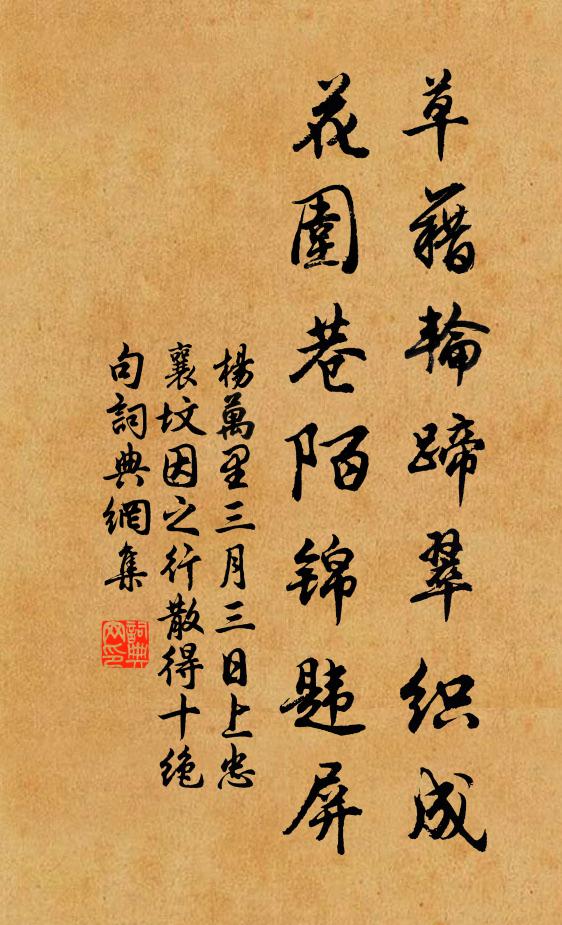 草藉輪蹄翠织成
花圍巷陌锦䪥屏
楊萬里三月三日上忠
襄坟因之行散得十绝
句詞典網集
詞典
网印